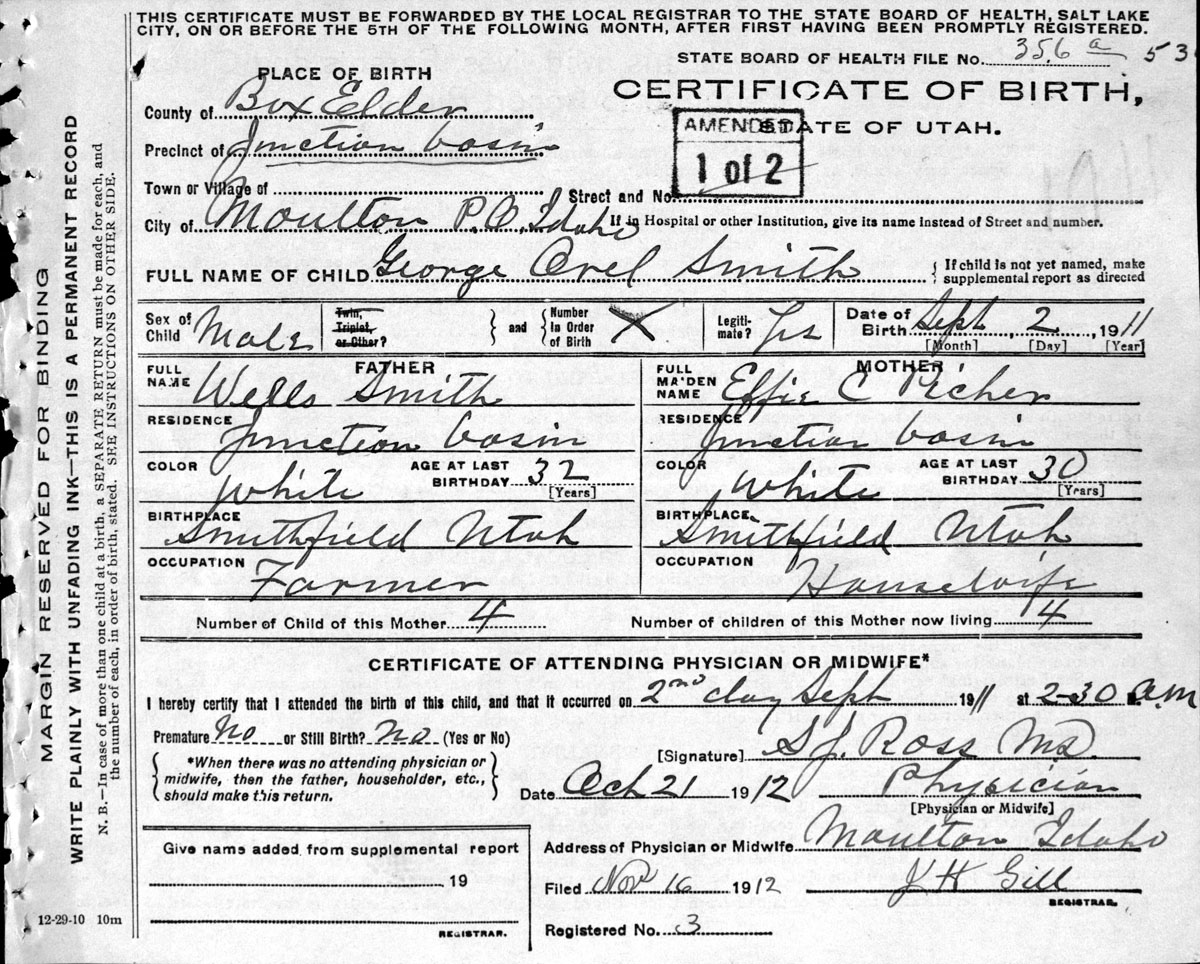 THIS CERTIFICATE MUST BE FORWARDED BY THE LOCAL REGISTRAR TO THE STATE BOARD OF HEALTH, SALT LAKE
CITY, ON OR BEFORE THE 5TH OF THE FOLLOWING MONTH, AFTER FIRST HAVING BEEN PROMPTLY REGISTERED.
STATE BOARD OF HEALTH FILE No. 356 a 53
PLACE OF BIRTH
CERTIFICATE OF BIRTH,
County of Box Elder
AMENDED
STATE OF UTAH.
Precinct of Junction basin
1 of 2
Town or Village of Street and No.
City of Moulton P.O. Idaho If in Hospital or other Institution, give its name instead of Street and number.
FULL NAME OF CHILD George Orel Smith { If child is not yet named, make supplemental report as directed
Sex of Child Male Twin, Triplet, or Other? } and { Number In Order of Birth X Legitimate? Yes Date of Birth Sept 2, 1911
[Month] [Day] [Year]
FATHER MOTHER
FULL NAME Wells Smith FULL MAIDEN NAME Effie C Picher
RESIDENCE Junction basin RESIDENCE Junction basin
COLOR White AGE AT LAST BIRTHDAY 32 [Years] COLOR White AGE AT LAST BIRTHDAY 30 [Years]
BIRTHPLACE Smithfield Utah BIRTHPLACE Smithfield Utah
OCCUPATION Farmer OCCUPATION Housewife
Number of Child of this Mother 4 Number of children of this Mother now living 4
CERTIFICATE OF ATTENDING PHYSICIAN OR MIDWIFE*
I hereby certify that I attended the birth of this child, and that it occurred on 2nd day Sept 1911 at 2-30 a.m
Premature No or Still Birth? No (Yes or No)
[Signature] S J. Ross MD
{ *When there was no attending physician or midwife, then the father, householder, etc., should make this return. }
Date Oct 21 1912 Physician
[Physician or Midwife]
Give name added from supplemental report
Address of Physician or Midwife Moulton Idaho
19
Filed Nov 16 1912 J H Gill
REGISTRAR.
12-29-10 10m
REGISTRAR.
Registered No. 3
MARGIN RESERVED FOR BINDING
WRITE PLAINLY WITH UNFADING INK—THIS IS A PERMANENT RECORD
N. B.—In case of more than one child at a birth, a SEPARATE RETURN must be made for each, and
the number of each, in order of birth, stated. SEE INSTRUCTIONS ON OTHER SIDE.